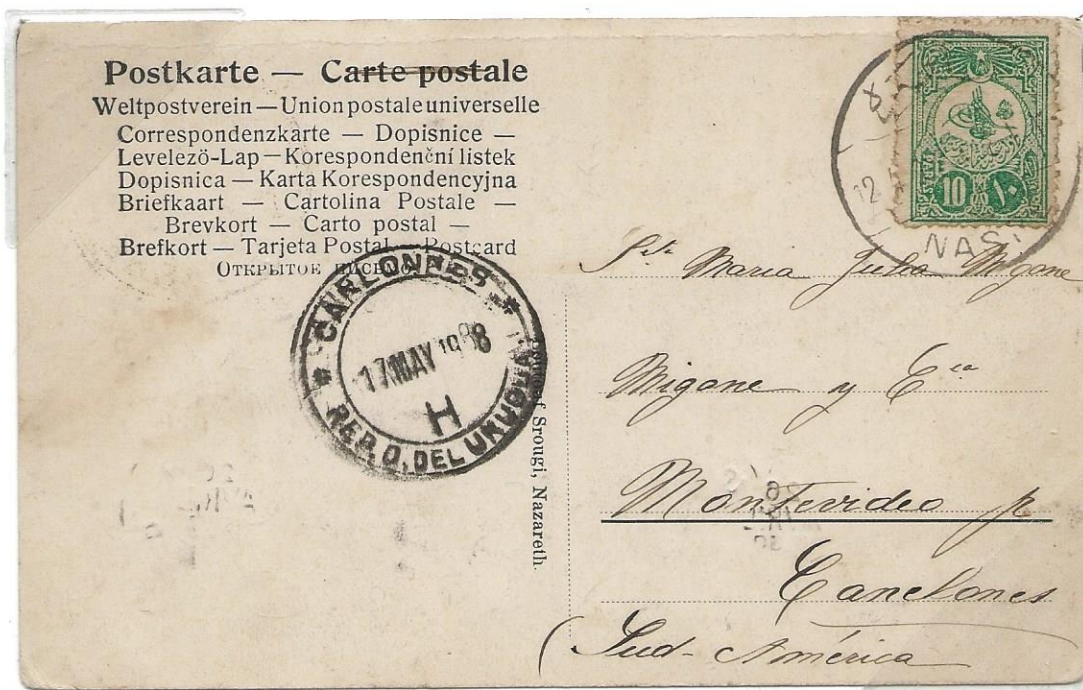 Postkarte — Carte postale
Weltpostverein — Union postale universelle
Correspondenzkarte — Dopisnice —
Levelező-Lap — Korespondenční lístek
Dopisnica — Karta Korespondencyjna
Briefkaart — Cartolina Postale —
Brevkort — Carto postal —
Brefkort — Tarjeta Postal — Postcard
Открытое письмо
10 ١٠
NAS
12
CANELONES
17 MAY 1908
H
REP. O. DEL URUGUA
Srougi, Nazareth.
Maria Julia Migone
Migone y Cia
Montevideo p
Canelones
(Sud-América